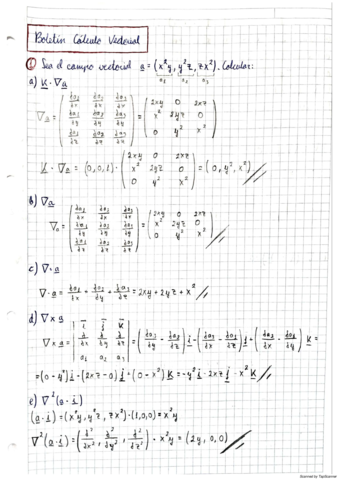 Boletín Cálculo Vectorial
① Sea el campo vectorial a = (x²y, y²z, zx²). Calcular:
a₁ a₂ a₃
a) k · ∇a
∇a = ( ∂a₁/∂x ∂a₂/∂x ∂a₃/∂x ; ∂a₁/∂y ∂a₂/∂y ∂a₃/∂y ; ∂a₁/∂z ∂a₂/∂z ∂a₃/∂z ) = ( 2xy 0 2xz ; x² 2yz 0 ; 0 y² x² )
k · ∇a = (0,0,1) · ( 2xy 0 2xz ; x² 2yz 0 ; 0 y² x² ) = (0, y², x²)
b) ∇a
∇a = ( ∂a₁/∂x ∂a₂/∂x ∂a₃/∂x ; ∂a₁/∂y ∂a₂/∂y ∂a₃/∂y ; ∂a₁/∂z ∂a₂/∂z ∂a₃/∂z ) = ( 2xy 0 2xz ; x² 2yz 0 ; 0 y² x² )
c) ∇ · a
∇ · a = ∂a₁/∂x + ∂a₂/∂y + ∂a₃/∂z = 2xy + 2yz + x²
d) ∇ × a
∇ × a = | i j k ; ∂/∂x ∂/∂y ∂/∂z ; a₁ a₂ a₃ | = (∂a₃/∂y - ∂a₂/∂z) i - (∂a₃/∂x - ∂a₁/∂z) j + (∂a₂/∂x - ∂a₁/∂y) k =
= (0 - y²) i - (2xz - 0) j + (0 - x²) k = -y² i - 2xz j - x² k
e) ∇² (a · i)
(a · i) = (x²y, y²z, zx²) · (1,0,0) = x²y
∇² (a · i) = (∂²/∂x², ∂²/∂y², ∂²/∂z²) · x²y = (2y, 0, 0)
Scanned by TapScanner